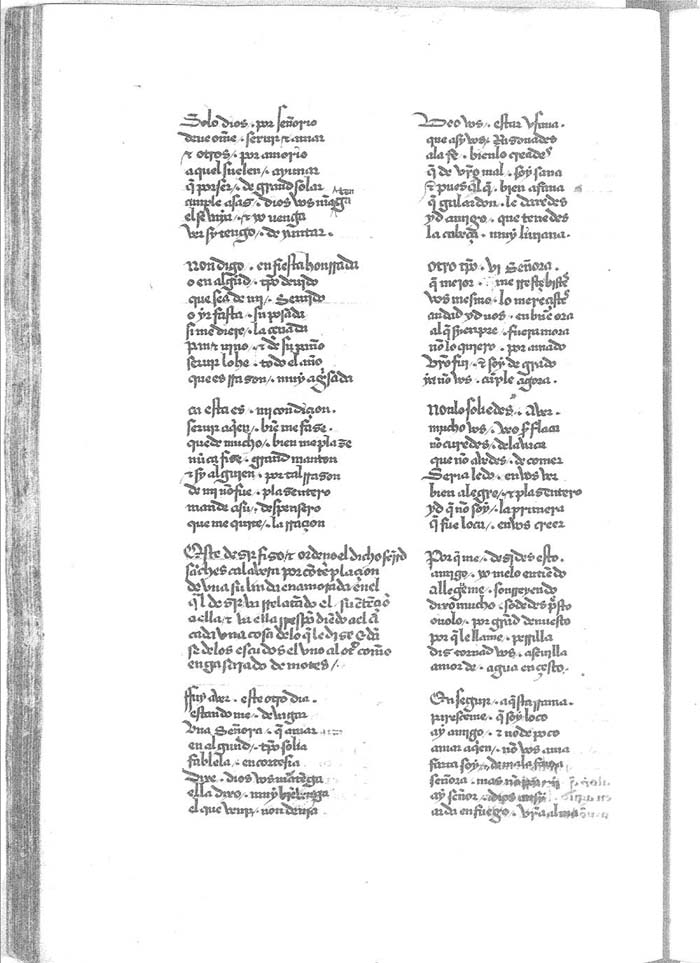 Solo dios · por señorio
deue ome · seruir & amar
& otros · por amorio
a quel suelen · ayunar
de grand solar
cunple asas · dios vos
& yo venga
ver sy tengo · de yantar ·
Non digo · en fiesta honrrada
o en algund · tpo deuido
que sea de mi · Seruido
o yr fasta · su posada
si me diere · la çeuada
pan & vino · & de su paño
seruir lo he · todo el año
que es rrason · muy aguisada
ca esta es · mi condiçion ·
seruir a qen · bie me fase ·
que de mucho · bien me plaze
nuca fise · grand
& sy alguien · por tal rrason
de mi no fue · plasentero
mande a su · despensero
que me quite · la rraçion
Este desir fiso & ordeno el dicho
sanches calauera por contenplaçion
de vna su linda enamorada en el
ql desir va rrelatando el
a ella & va ella rrespondiendo a el a
cada vna cosa de lo q le dise
el vno al otro como
en gasajado de motes
ffuy a ver · este otro dia ·
estando me · de vagar
Vna Señora · q amar
en algund · tpo solia
fablela · en cortesia
Dixe · dios vos mantenga
ella dixo
el que venir · non deuia
Veo vos · estar vfana ·
que asy vos · Rasonades
a la fe · bien lo creades
q de vro mal · soy sana
& pues q l q · bien afana
q gualardon · le daredes
yd amigo · que tenedes
la cabeça · muy liuiana ·
Otro tpo · vi Señora ·
q mejor · me
vos mesmo · lo
andad yd vos · en bue ora
al q sienpre · fuera mora
no lo quiero · por amado
vro fui · & soy de grado
ya no vos · cunple agora ·
Non lo soliedes · aver ·
mucho vos · veo flaca
no curedes · de la vaca
que no avedes · de comer
Seria ledo · en vos ver
bien alegre · & plasentero
yd q no soy · la primera
q fue loca · en vos creer
Por q me · desides esto ·
amigo · yo me lo entiedo
allegeme · sonrreyendo
dixo mucho · sodes presto
ouolo · por grand denuesto
por q le llame ·
dis tornad vos · a seuilla
amor de · agua en çesto ·
En seguir · aqsta rrama ·
paresçeme · q soy loco
ay amigo · & no de poco
amar a qen · no vos ama
farta soy · de mala fama
señora · mas no
ay señor · dios
arda en fuego · vra alma